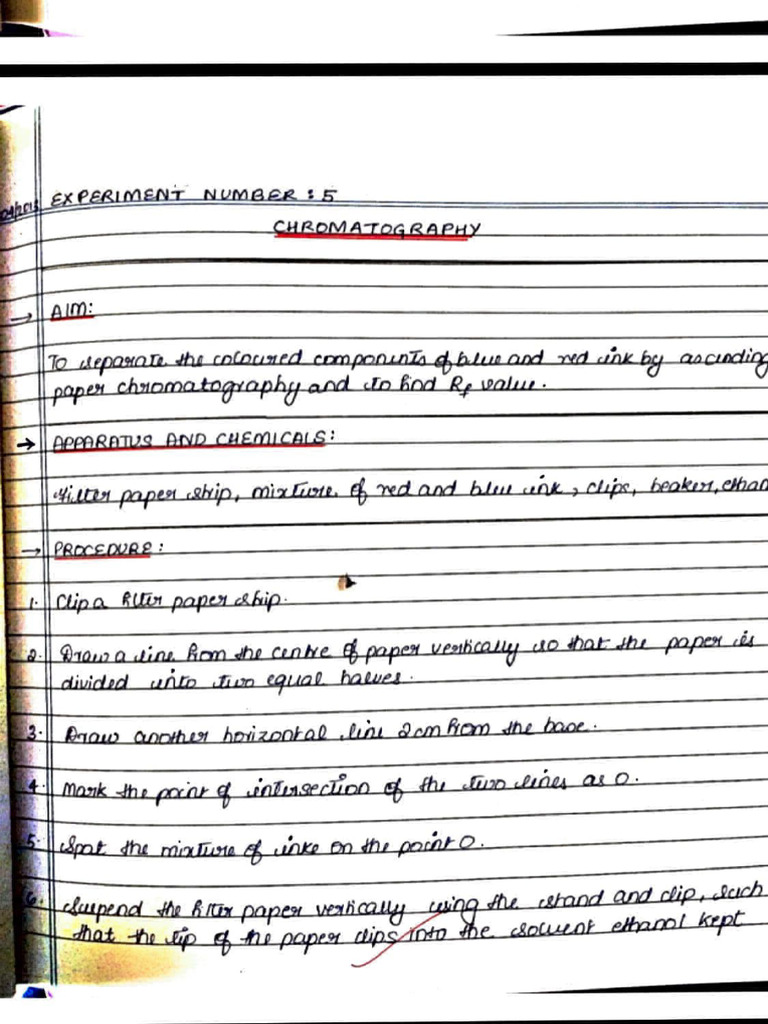 EXPERIMENT NUMBER : 5
CHROMATOGRAPHY
→ AIM:
To separate the coloured components of blue and red ink by ascending
paper chromatography and to find Rf value.
→ APPARATUS AND CHEMICALS:
Filter paper strip, mixture of red and blue ink, clips, beaker, ethan
→ PROCEDURE :
1. Clip a filter paper strip.
2. Draw a line from the centre of paper vertically so that the paper is
divided into two equal halves.
3. Draw another horizontal line 2cm from the base.
4. Mark the point of intersection of the two lines as O.
5. Spot the mixture of inks on the point O.
6. Suspend the filter paper vertically using the stand and clip, such
that the tip of the paper dips into the solvent ethanol kept